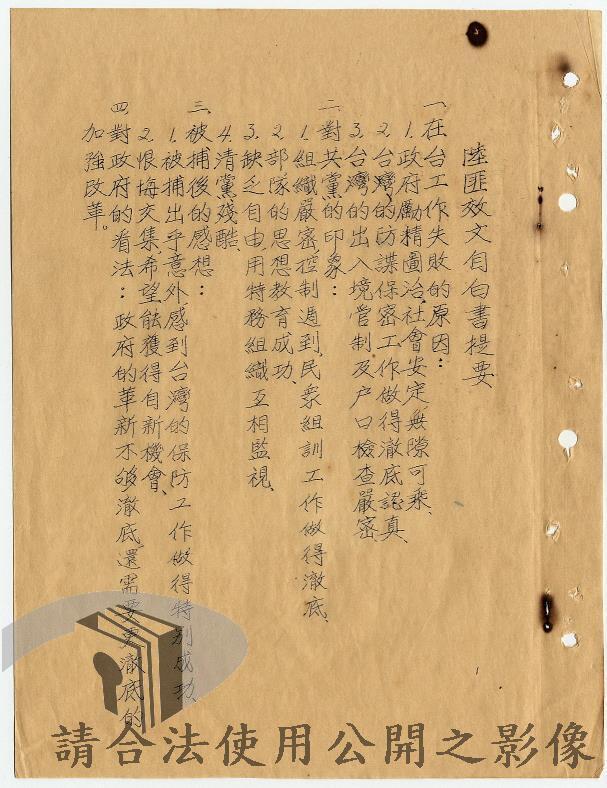 陸匪效文自白書提要
一、在台工作失敗的原因：
1.政府勵精圖治、社會安定、無隙可乘、
2.台灣的防諜保密工作做得澈底認真、
3.台灣的出入境管制及户口檢查嚴密、
二、對共黨的印象：
1.組織嚴密、控制週到、民衆組訓工作做得澈底、
2.部隊的思想教育成功、
3.缺乏自由、用特務組織互相監視、
4.清黨殘酷
三、被捕後的感想：
1.被捕出乎意外、感到台灣的保防工作做得特別成功、
2.恨悔交集、希望能獲得自新機會、
四、對政府的看法：政府的革新不夠澈底、還需要更澈底的
加強改革。
請合法使用公開之影像